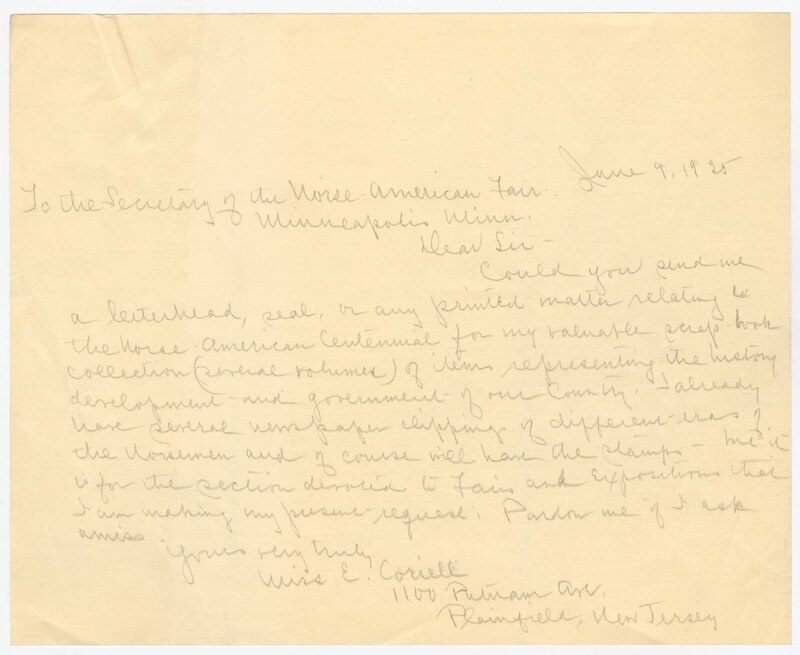 June 9, 1925
To the Secretary of the Norse-American Fair.
Minneapolis Minn.
Dear Sir -
Could you send me
a letterhead, seal, or any printed matter relating to
the Norse-American Centennial for my valuable scrap-book
collection (several volumes) of items representing the history
development and government of our Country. I already
have several newspaper clippings of different eras of
the Norsemen and of course will have the stamps - but it
is for the section devoted to Fairs and Expositions that
I am making my present request. Pardon me if I ask
amiss.
Yours very truly,
Miss E. Coriell
1100 Putnam Ave.
Plainfield, New Jersey.